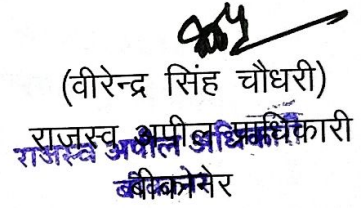 (वीरेन्द्र सिंह चौधरी)
राजस्व अपील प्राधिकारी
राजस्व अपील अधिकारी
बीकानेर